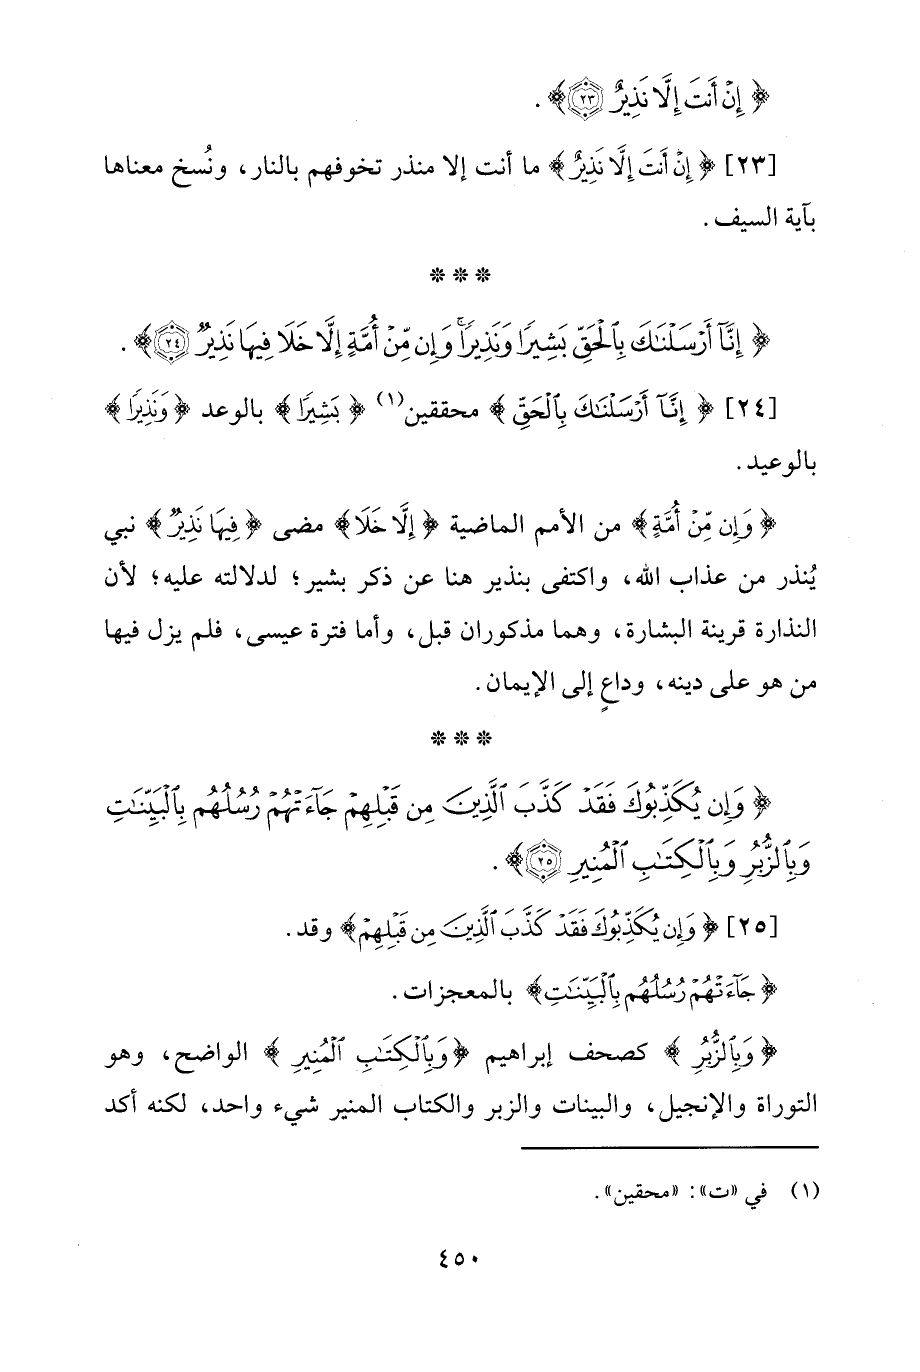 ﴿ إِنْ أَنتَ إِلَّا نَذِيرٌ ۝٢٣ ﴾ .
[٢٣] ﴿ إِنْ أَنتَ إِلَّا نَذِيرٌ ﴾ ما أنت إلا منذر تخوفهم بالنار، ونُسخ معناها
بآية السيف .
* * *
﴿ إِنَّآ أَرْسَلْنَٰكَ بِٱلْحَقِّ بَشِيرًا وَنَذِيرًا ۚ وَإِن مِّنْ أُمَّةٍ إِلَّا خَلَا فِيهَا نَذِيرٌ ۝٢٤ ﴾ .
[٢٤] ﴿ إِنَّآ أَرْسَلْنَٰكَ بِٱلْحَقِّ ﴾ محققين(١) ﴿ بَشِيرًا ﴾ بالوعد ﴿ وَنَذِيرًا ﴾
بالوعيد .
﴿ وَإِن مِّنْ أُمَّةٍ ﴾ من الأمم الماضية ﴿ إِلَّا خَلَا ﴾ مضى ﴿ فِيهَا نَذِيرٌ ﴾ نبي
يُنذر من عذاب الله، واكتفى بنذير هنا عن ذكر بشير؛ لدلالته عليه؛ لأن
النذارة قرينة البشارة، وهما مذكوران قبل، وأما فترة عيسى، فلم يزل فيها
من هو على دينه، وداعٍ إلى الإيمان .
* * *
﴿ وَإِن يُكَذِّبُوكَ فَقَدْ كَذَّبَ ٱلَّذِينَ مِن قَبْلِهِمْ جَآءَتْهُمْ رُسُلُهُم بِٱلْبَيِّنَٰتِ
وَبِٱلزُّبُرِ وَبِٱلْكِتَٰبِ ٱلْمُنِيرِ ۝٢٥ ﴾ .
[٢٥] ﴿ وَإِن يُكَذِّبُوكَ فَقَدْ كَذَّبَ ٱلَّذِينَ مِن قَبْلِهِمْ ﴾ وقد .
﴿ جَآءَتْهُمْ رُسُلُهُم بِٱلْبَيِّنَٰتِ ﴾ بالمعجزات .
﴿ وَبِٱلزُّبُرِ ﴾ كصحف إبراهيم ﴿ وَبِٱلْكِتَٰبِ ٱلْمُنِيرِ ﴾ الواضح، وهو
التوراة والإنجيل، والبينات والزبر والكتاب المنير شيء واحد، لكنه أكد
(١) في «ت»: «محقين» .
٤٥٠